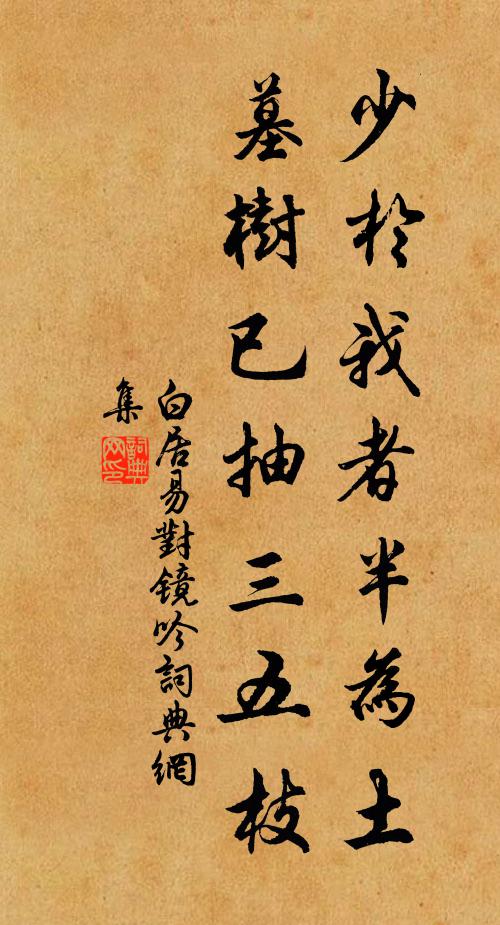 少於我者半為土
墓樹已抽三五枝
白居易對鏡吟詞典網
集